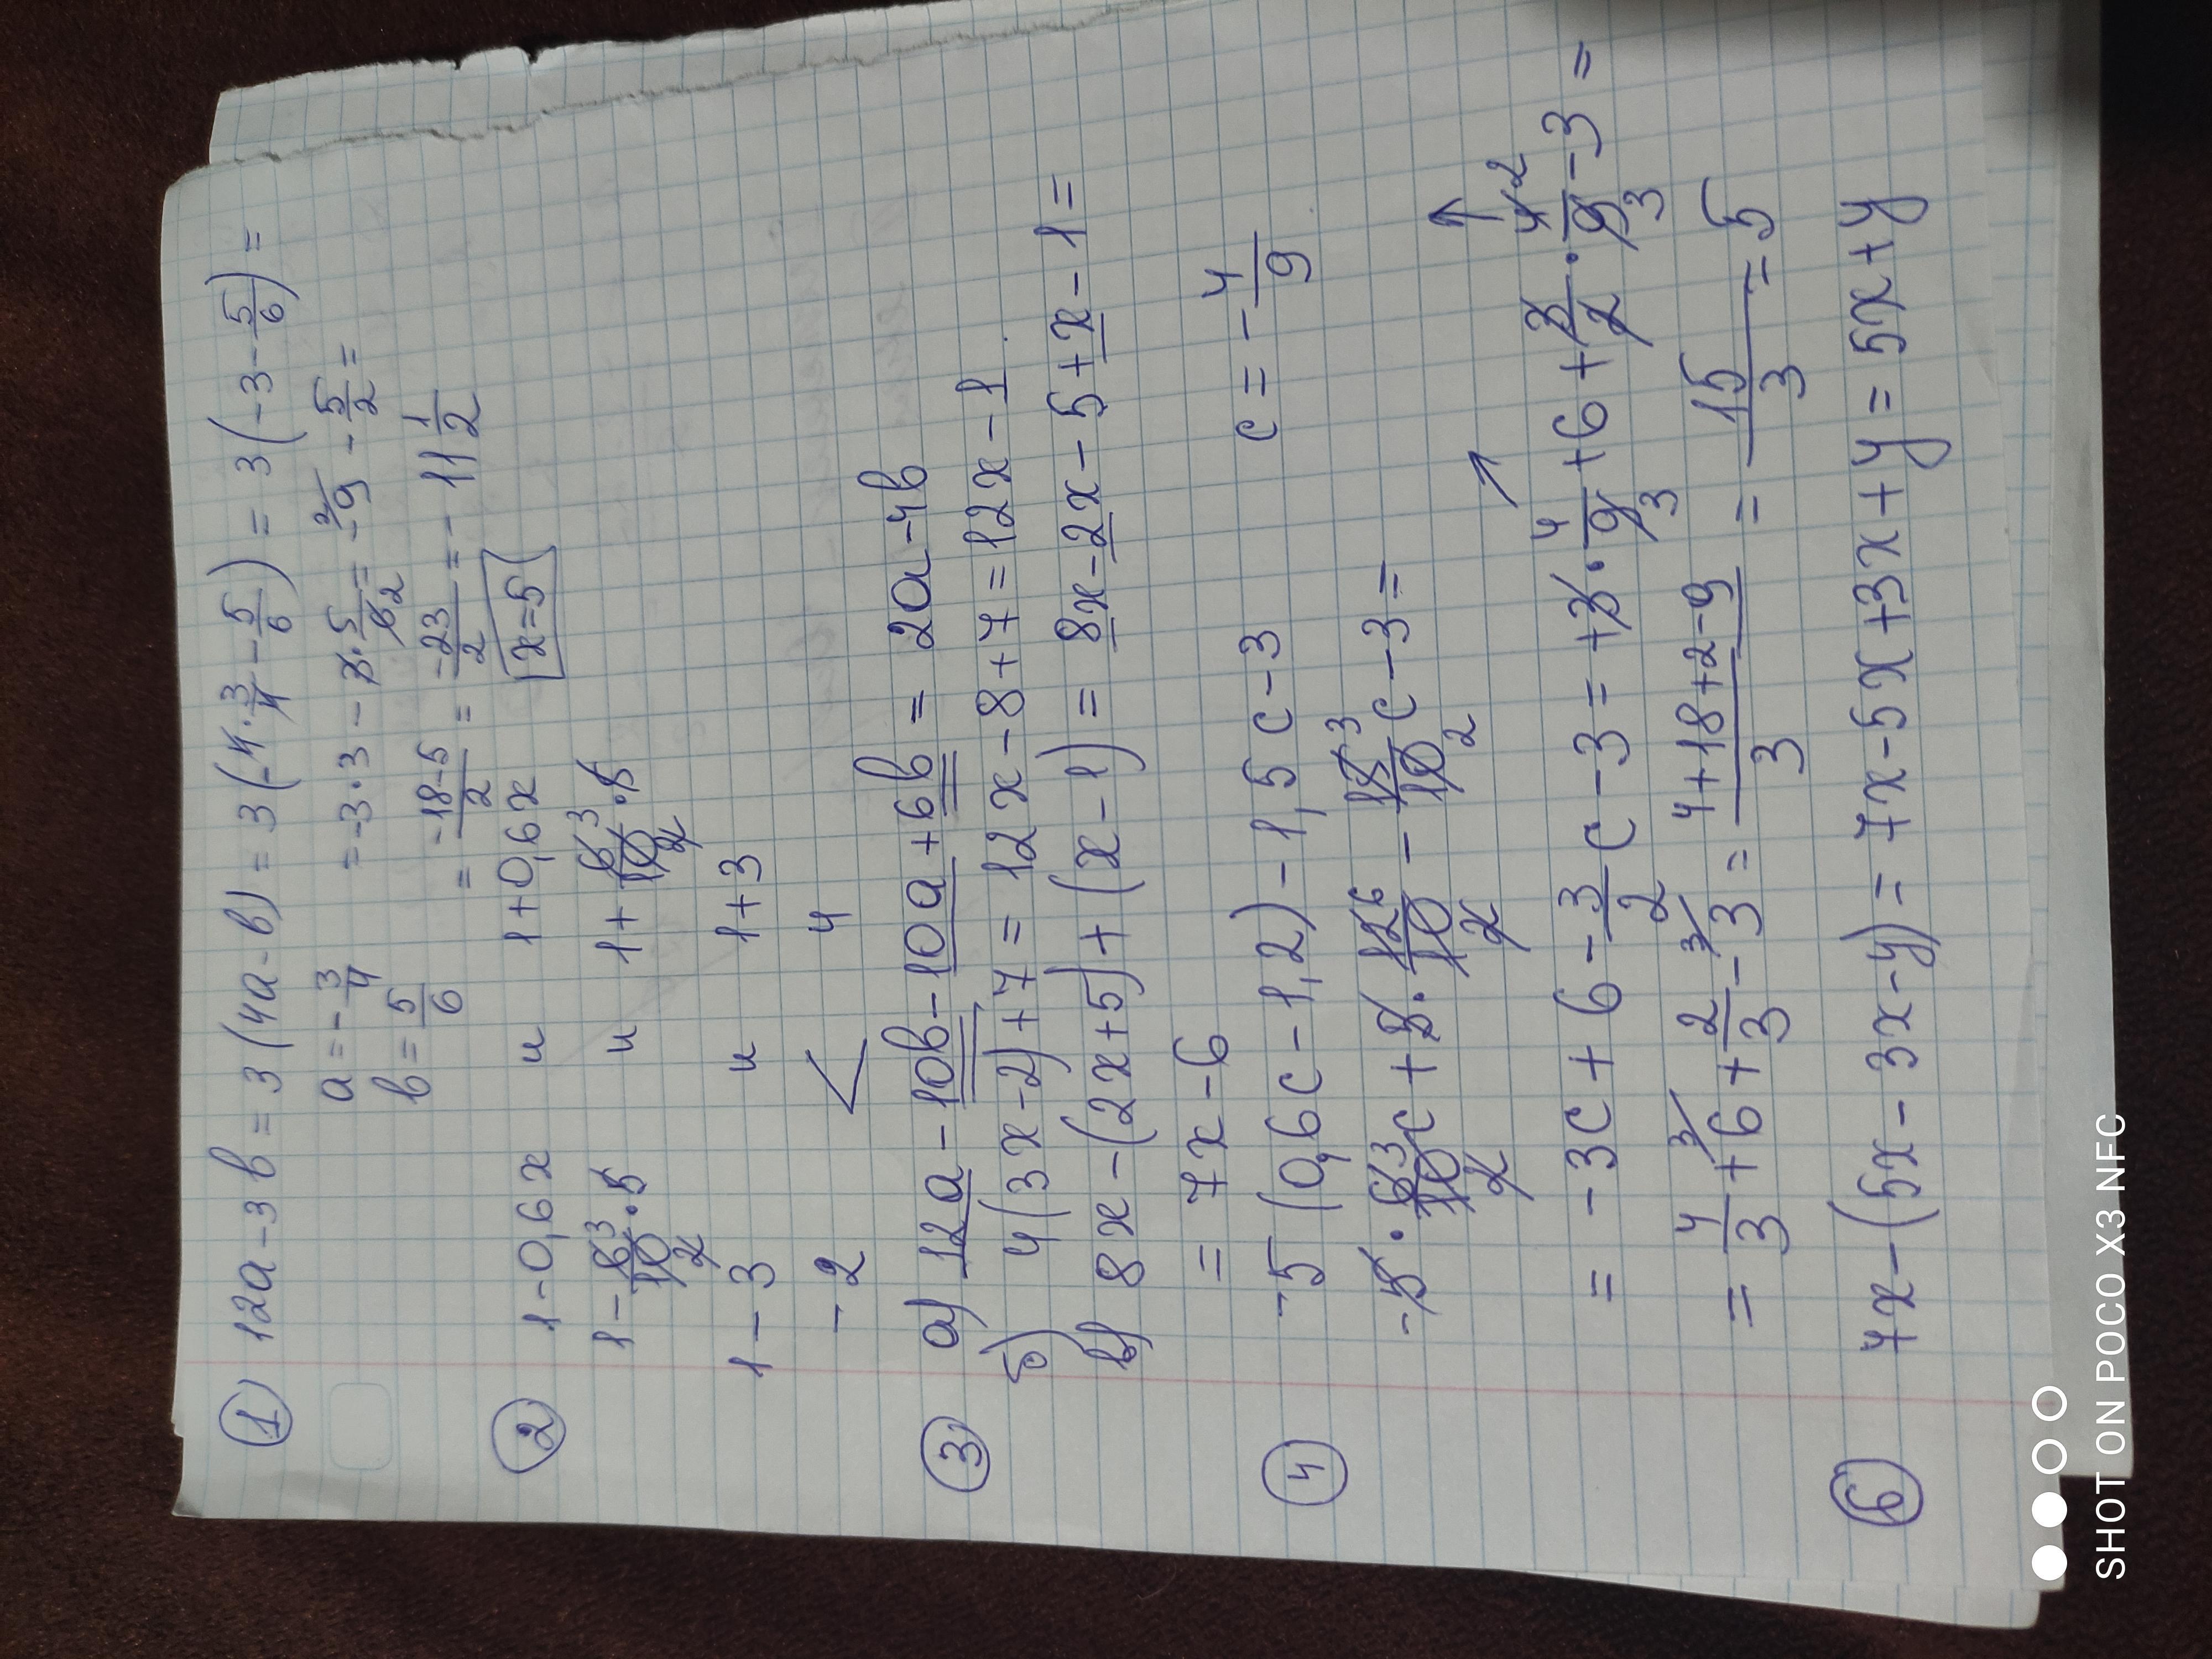 ① 12a-3в = 3(4a-в) = 3(-4·3/4-5/6) = 3(-3-5/6) =
a=-3/4 = -3·3-3·5/62 = -2/9-5/2 =
в=5/6 = -18-5/2 = -23/2 = -11 1/2
② 1-0,6x и 1+0,6x x=5
1-63/102·5 и 1+63/102·5
1-3 и 1+3
-2 < 4
③ а) 12a-10в-10a+6в = 2a-4в
б) 4(3x-2)+7 = 12x-8+7=12x-1
в) 8x-(2x+5)+(x-1) = 8x-2x-5+x-1=
= 7x-6
④ -5(0,6c-1,2)-1,5c-3 c=-4/9
-5·63/102c+5·126/102-153/102c-3=
= -3c+6-3/2c-3=+3·4/93+6+3/2·42/93-3=
= 4/3+6 3/+2/3-3 3/=4+18+2-9/3=15/3=5
⑥ 7x-(5x-3x-y)=7x-5x+3x+y=5x+y
SHOT ON POCO X3 NFC